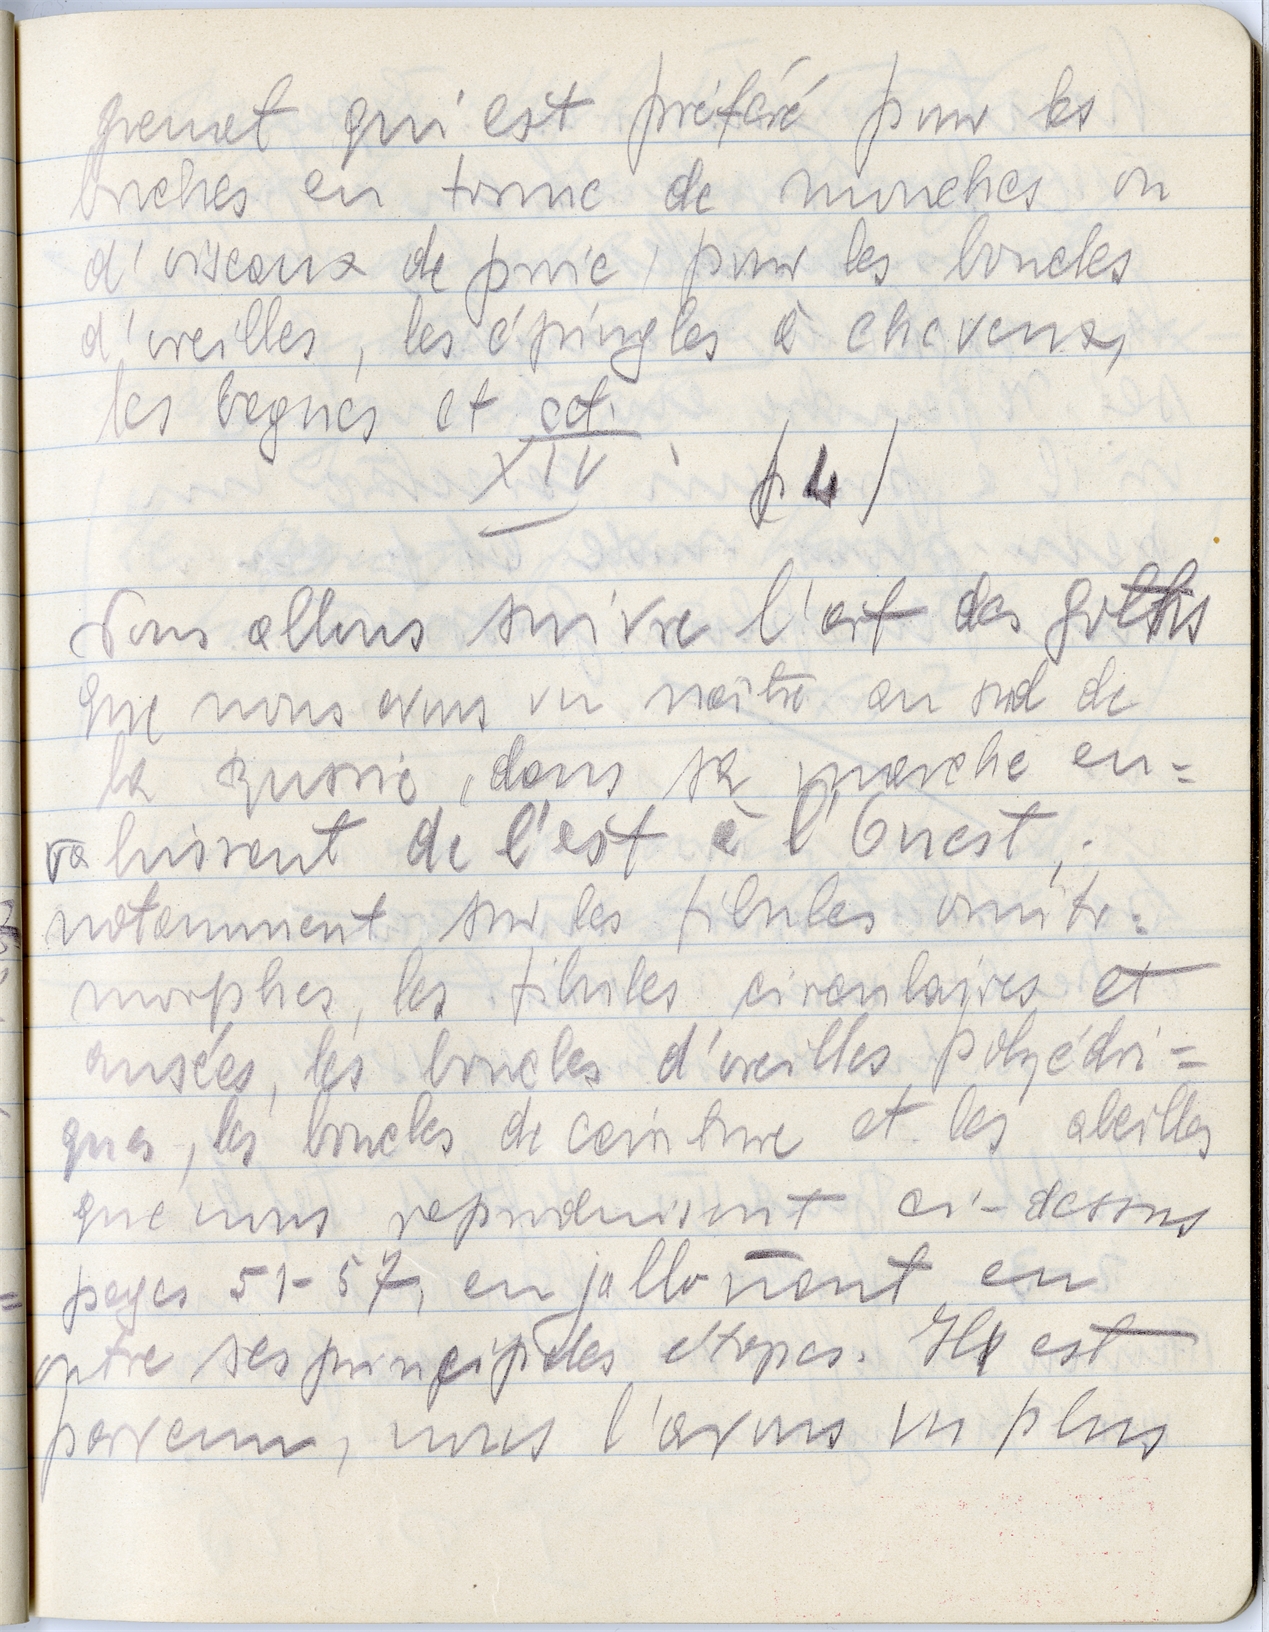 grenat qui est préféré pour les
broches en forme de mouches ou
d'oiseaux de proie, pour les boucles
d'oreilles, les épingles à cheveux,
les bagues et cet.
XIV p 4)
Nous allons suivre l'art des goths
que nous avons vu naître au sud de
la Russie, dans sa marche en=
vahissent de l'est à l'Ouest,
notamment sur les fibules ornito=
morphes, les fibules circulaires et
ansées, les boucles d'oreilles polyédri=
ques, les boucles de ceinture et les abeilles
que nous reproduisont ci-dessus
pages 51-57, en jallonant en
outre ses principales étapes. Il est
parvenu, nous l'avons vu plus